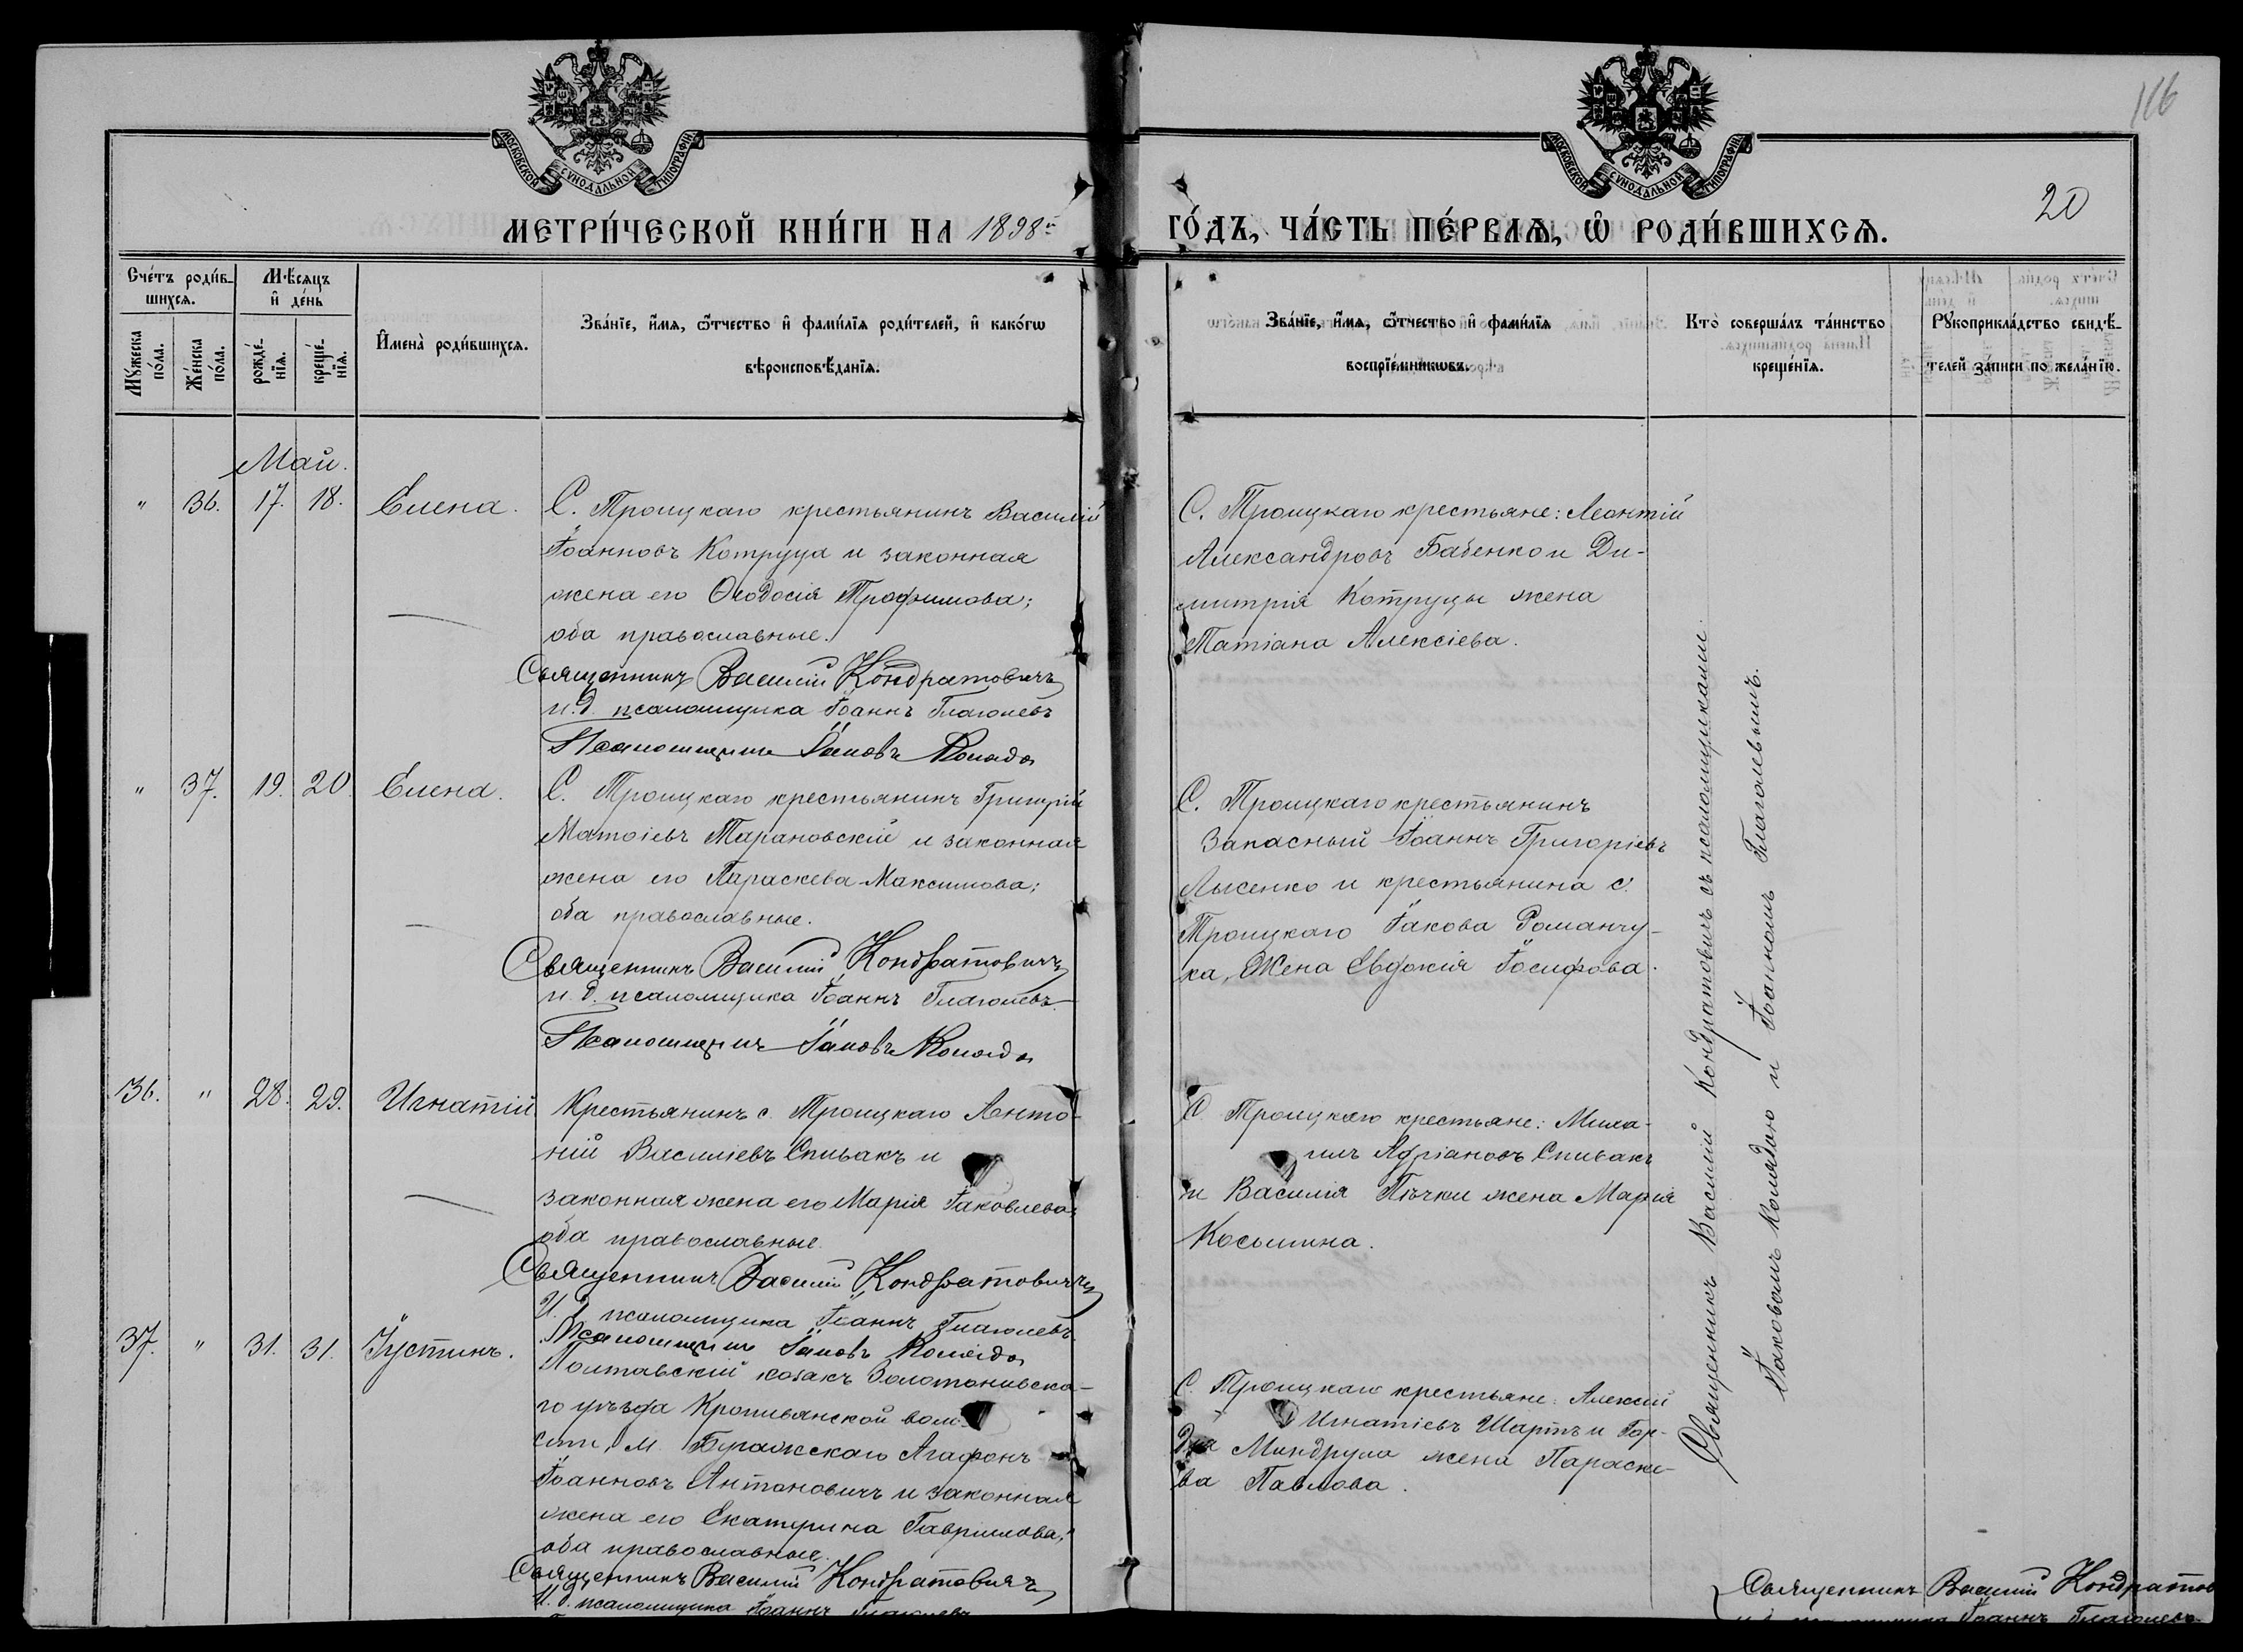 116
20
МОСКОВСКОЙ СѴНОДАЛЬНОЙ ТИПОГРАФІИ
МОСКОВСКОЙ СѴНОДАЛЬНОЙ ТИПОГРАФІИ
МЕТРИ́ЧЕСКОЙ КНИ́ГИ НА 1898й
ГО́ДЪ, ЧА́СТЬ ПЕ́РВАѦ, Ѡ҆ РОДИ́ВШИХСѦ.
Сче́тъ роди́в-
шихсѧ.
Мꙋ́жеска
по́ла.
Же́нска
по́ла.
Мѣ́сѧцъ
и҆ де́нь
рожде́-
нїѧ.
креще́-
нїѧ.
И҆мена̀ роди́вшихсѧ.
Зва́нїе, и҆́мѧ, ѻ҆́тчество и҆ фами́лїѧ роди́телей, и҆ како́гѡ
вѣроисповѣ́данїѧ.
Зва́нїе, и҆́мѧ, ѻ҆́тчество и҆ фами́лїѧ
воспрїе́мникѡвъ.
Кто̀ соверша́лъ та́инство
креще́нїѧ.
Рꙋкоприкла́дство свидѣ́-
телей за́писи по жела́нїю.
Май.
" 36. 17. 18. Елена.
С. Троицкаго крестьянинъ Василій
Іоанновъ Котруца и законная
жена его Ѳеодосія Трофимова;
оба православные.
Священникъ Василій Кондратовичъ
и. д. псаломщика Іоаннъ Глаголевъ
Псаломщикъ Іаковъ Коляда
С. Троицкаго крестьяне: Леонтій
Александровъ Бабенко и Ди-
митрія Котруцы жена
Татіана Алексіева.
" 37. 19. 20. Елена.
С. Троицкаго крестьянинъ Григорій
Матѳіевъ Тарановскій и законная
жена его Параскева Максимова;
оба православные.
Священникъ Василій Кондратовичъ
и. д. псаломщика Іоаннъ Глаголевъ
Псаломщикъ Іаковъ Коляда
С. Троицкаго крестьянинъ
запасный Іоаннъ Григоріевъ
Лысенко и крестьянина с.
Троицкаго Іакова Романчу-
ка, жена Евдокія Іосифова.
36. " 28. 29. Игнатій
Крестьянинъ с. Троицкаго Анто-
ній Василіевъ Спивакъ и
законная жена его Марія Іаковлева;
оба православные.
Священникъ Василій Кондратовичъ
И. д. псаломщика Іоаннъ Глаголевъ
Псаломщикъ Іаковъ Коляда
С. Троицкаго крестьяне: Миха-
илъ Адріановъ Спивакъ
и Василія Пѣчки жена Марія
Косьмина.
37. " 31. 31. Іустинъ.
Полтавскій козакъ Золотоновска-
го уѣзда Кропивянской воло-
сти, м. Бугажскаго Агафонъ
Іоанновъ Антоновичъ и законная
жена его Екатерина Гавриилова;
оба православные.
Священникъ Василій Кондратовичъ
И. д. псаломщика Іоаннъ Глаголевъ
С. Троицкаго крестьяне: Алексій
Игнатіевъ Шартъ и Гор-
дея Миндрула жена Параске-
ва Павлова.
Священникъ Василій Кондратовичъ съ псаломщиками:
Іаковомъ Колядою и Іоанномъ Глаголевымъ.
Священникъ Василій Кондратов
Іоаннъ Глаголевъ